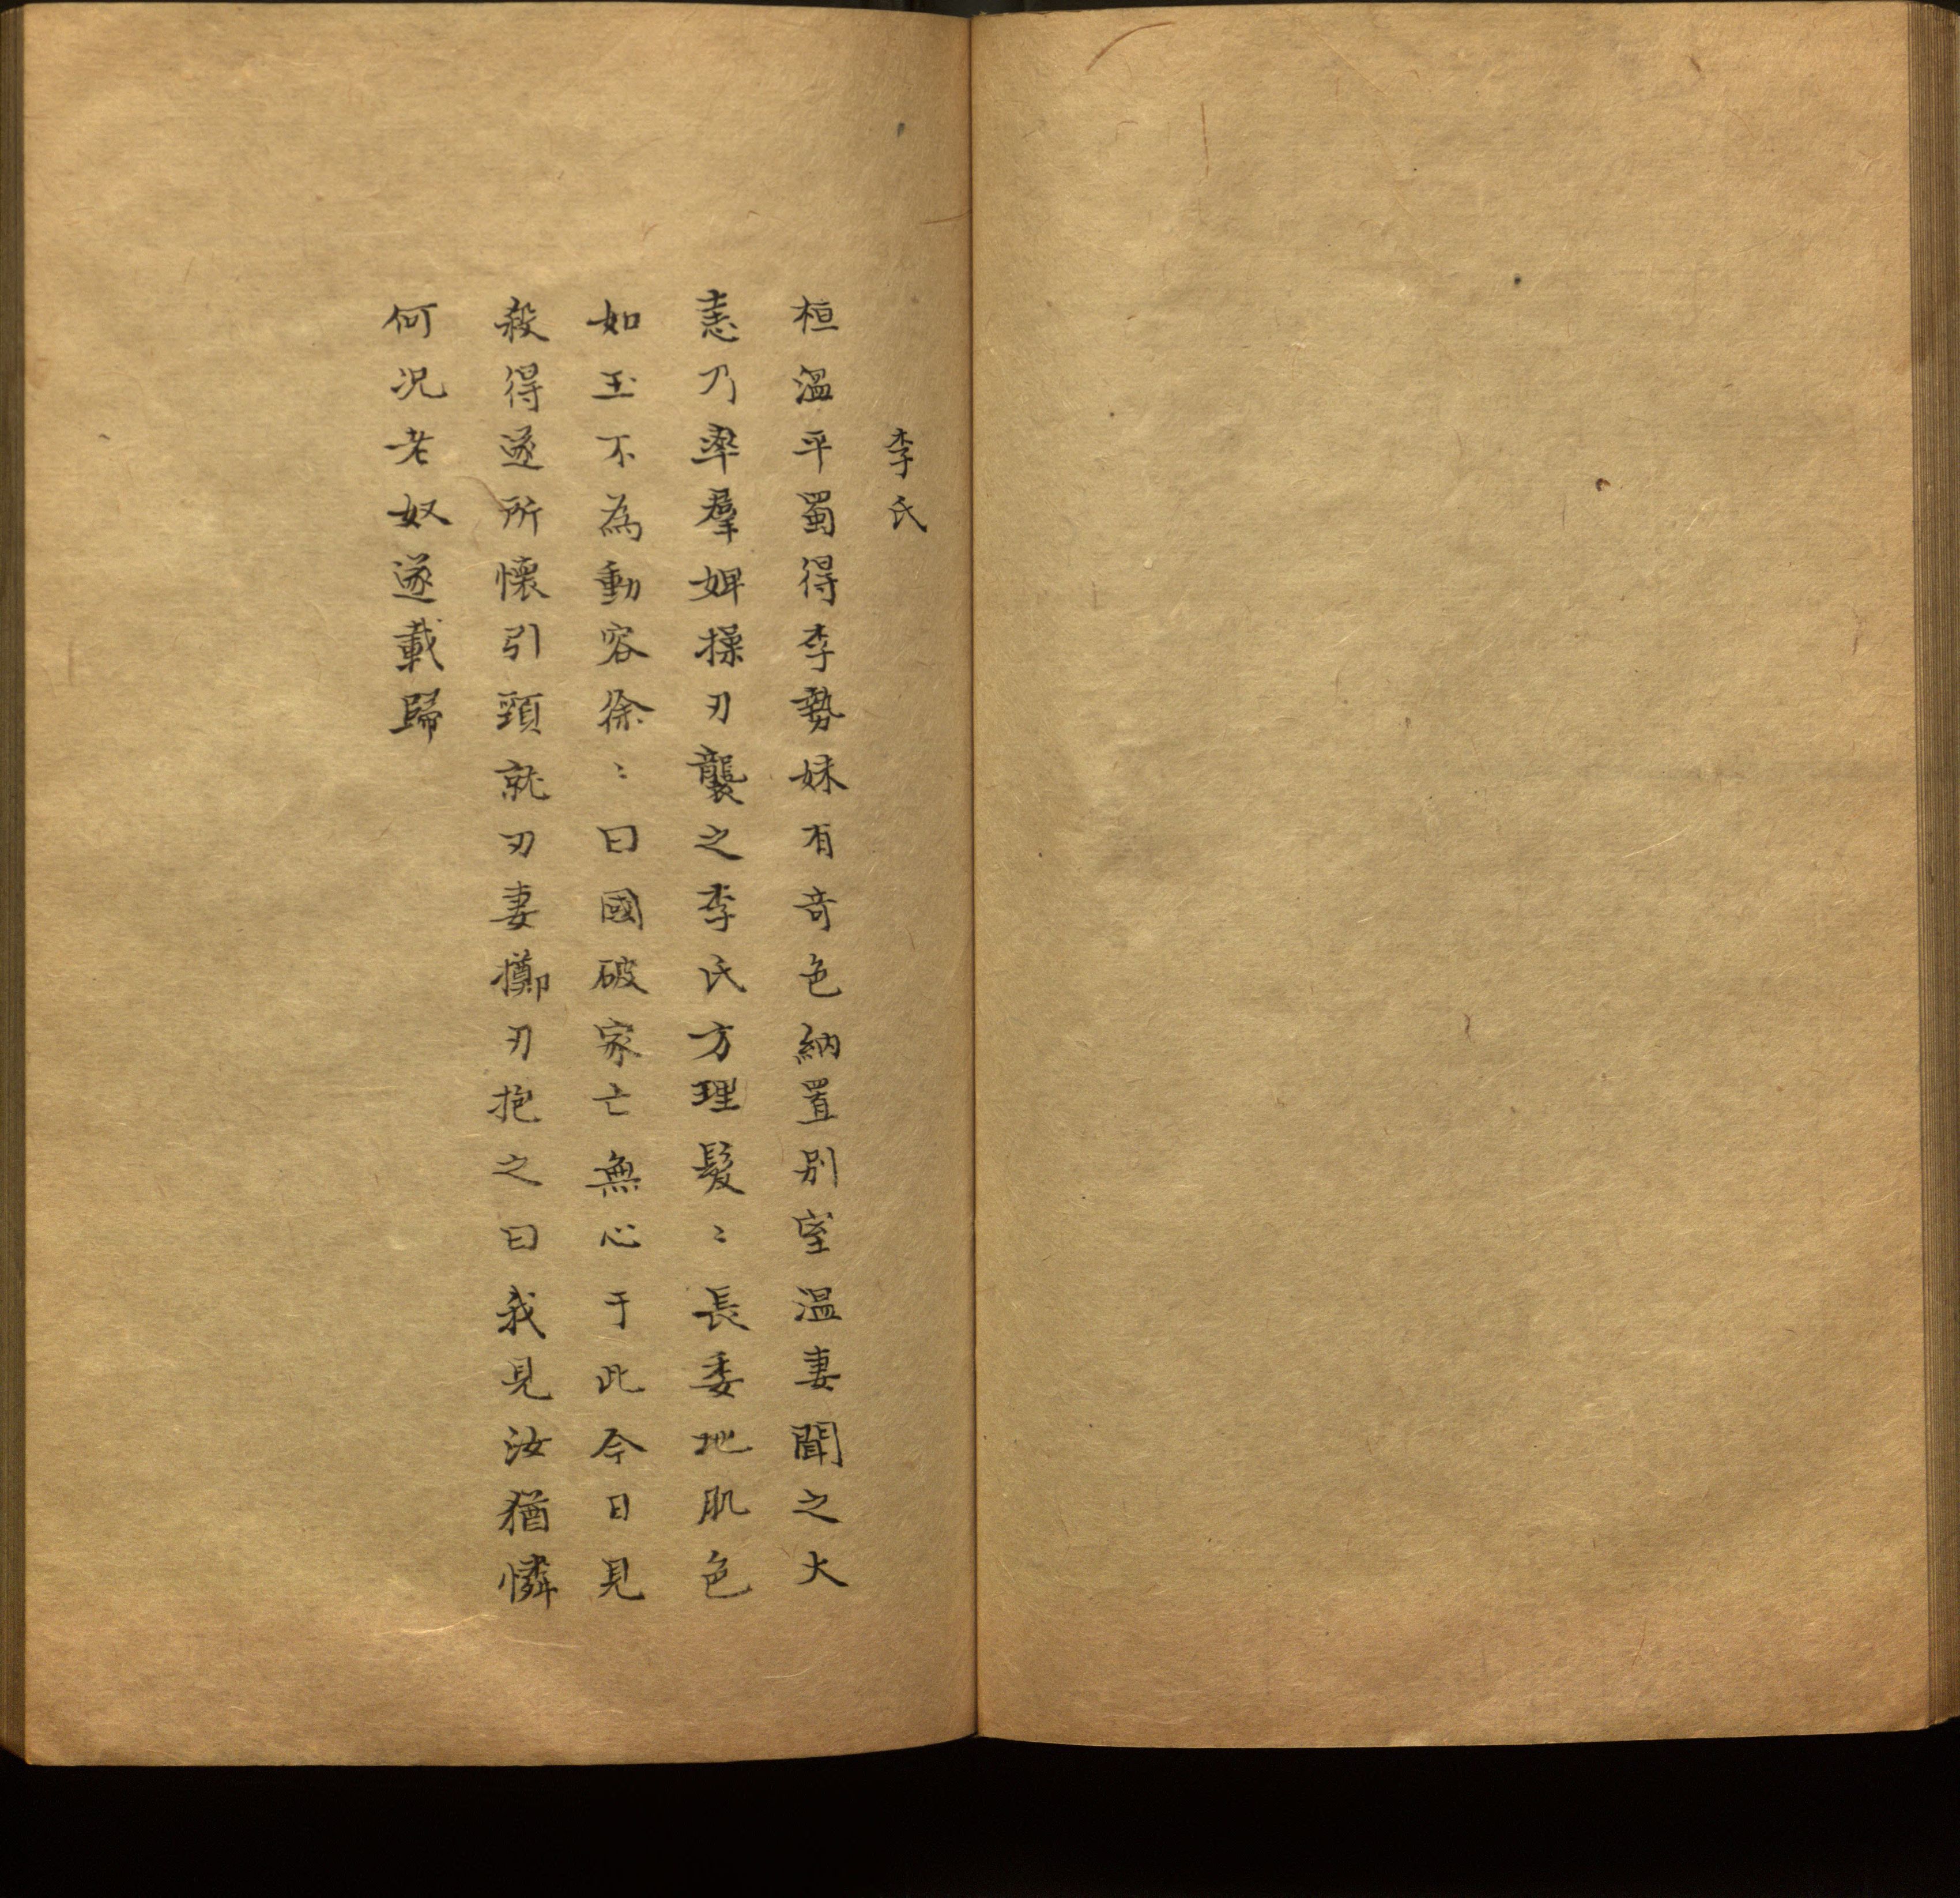 李氏
桓溫平蜀得李勢妹有奇色納置別室溫妻聞之大
恚乃率羣婢操刃襲之李氏方理髮〻長委地肌色
如玉不為動容徐〻曰國破家亡無心于此今日見
殺得遂所懷引頸就刃妻擲刃抱之曰我見汝猶憐
何况老奴遂載歸